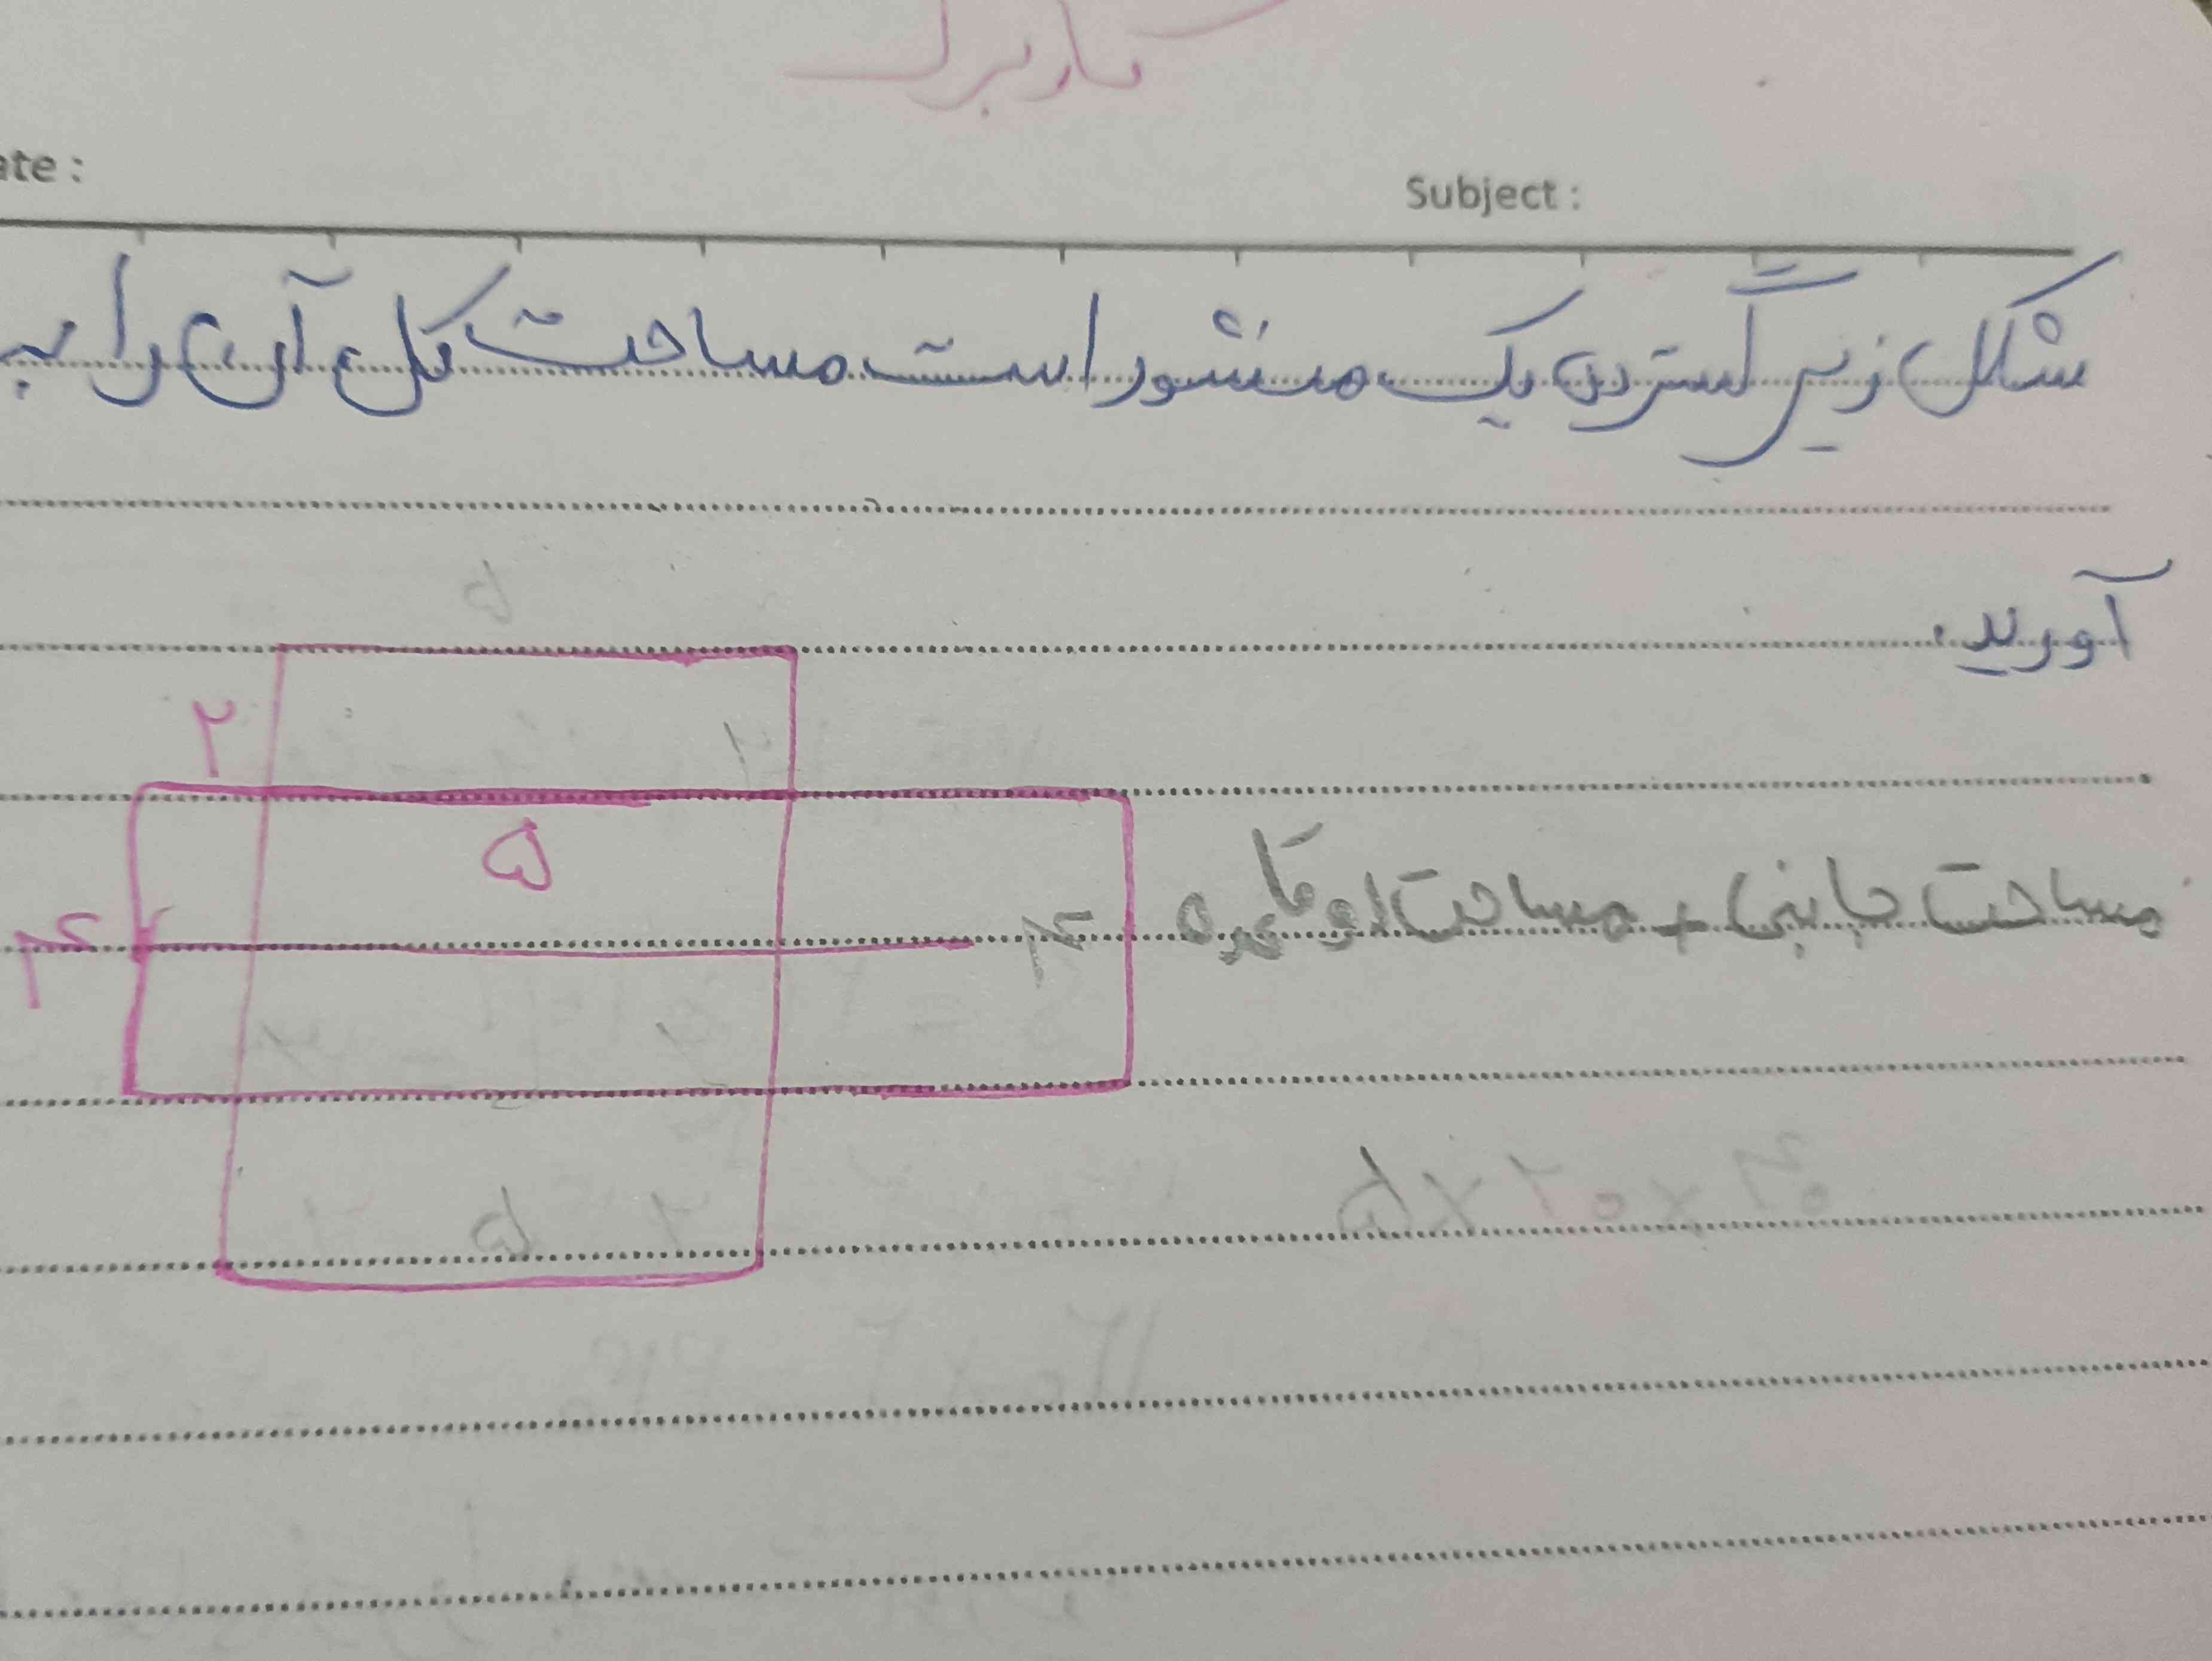 کاربرگ
ate :
Subject :
شکل زیر گسترده یک منشور است مساحت کل آن را به
آورید.
۲
۵
۴
۴
مساحت جانبی + مساحت دو قاعده